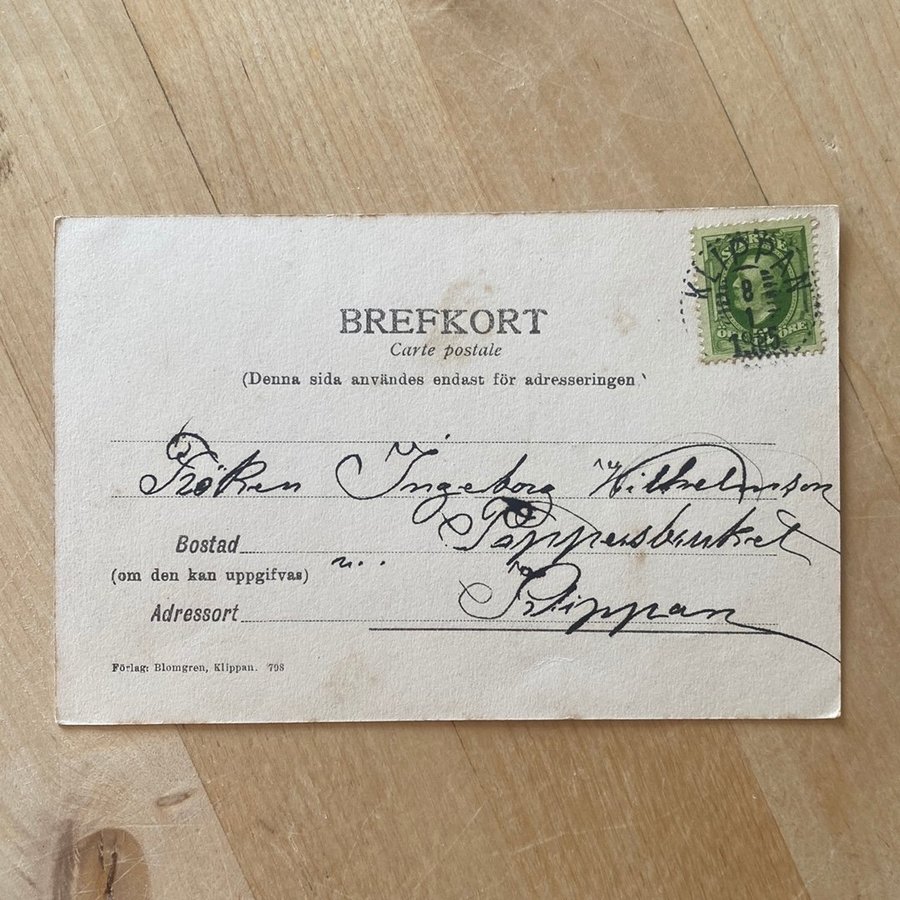 SVERIGE
KLIPPAN
8
1
ÖRE
BREFKORT
Carte postale
(Denna sida användes endast för adresseringen
Fröken Ingeborg Wilhelmson
Bostad Pappersbruket
(om den kan uppgifvas)
Adressort Klippan
Förlag: Blomgren, Klippan. 798